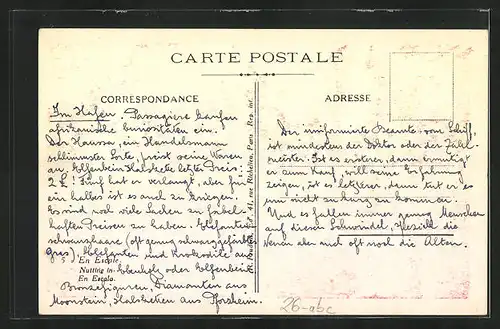 CARTE POSTALE
CORRESPONDANCE
Im Hafen. Passagiere kaufen
afrikanische Curiositäten ein.
Der Haussa, ein Handelsmann
schlimmster Sorte, preist seine Waren
an. Elfenbein Halskette letzter Preis:
2 £! Fünf hat er verlangt, aber für
ein halbes ist es auch zu kriegen.
Es sind noch viele Sachen zu fabel-
haften Preisen zu haben. Elefanten-
schwanzhaare (oft genug schwarzgefärbtes
Gras), Elefanten und Krokodile aus
Ebenholz oder Elfenbein.
Bronzefiguren, Diamanten aus
Moonstein, Halsketten aus Pforzheim.
5 En Escale.
Nutting in
En Escala.
41, rue Richelieu, Paris. Rep. int.
ADRESSE
Der uniformierte Beamte vom Schiff,
ist mindestens der Doktor oder der Zahl-
meister. Ist es ersterer, dann ermutigt
er zum Kauf, will seine Erfahrung
zeigen, ist es letzterer, dann tut er es
um nicht zu kurz zu kommen.
Und es fallen immer genug Menschen
auf diesen Schwindel, speziell die
Neuen aber auch oft noch die Alten.
26-abc